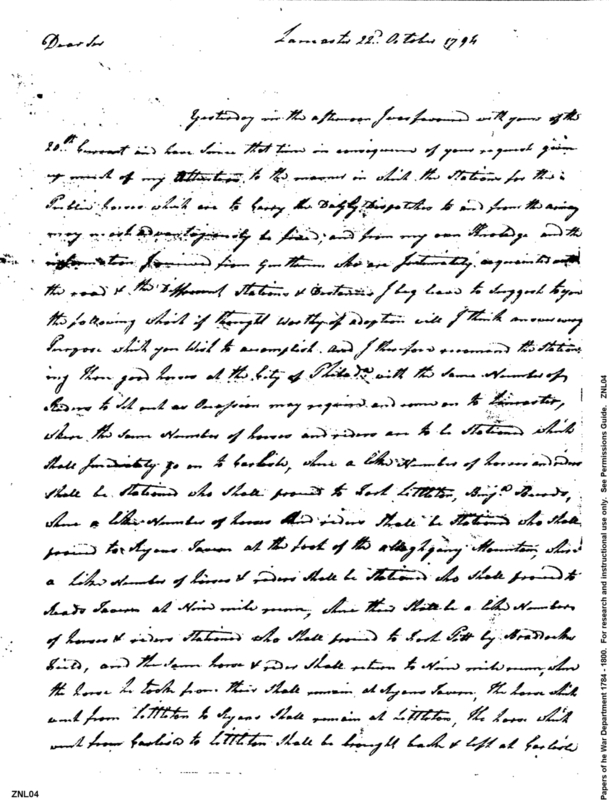 Dear Sir Lancaster 22d October 1794
Yesterday in the afternoon I was favoured with yours of the
20th Current and have since that time in consequence of your request given
up much of my Attention to the manner in which the Stations for the
Public horses which are to Carry the Daily Dispatches to and from the army
may most advantageously be fixed, and from my own Knowledge and the
information I received from Gentlemen who are fortunately acquainted with
the road & the Different Stations & Distances I beg leave to Suggest to you
the following which if thought worthy of adoption will I think answer every
Purpose which you Wish to accomplish. And I therefore recommend the Station
ing Three good horses at the City of Philada. with the Same Number of
Riders to Set out as Occasion may require and come on to Lancaster,
where the Same Number of horses and riders are to be Stationed which
Shall Immediately go on to Carlisle, where a like Number of horses and riders
Shall be Stationed who Shall proceed to Fort Littleton,
where a like Number of horses and riders Shall be Stationed who Shall
proceed to Ryans Tavern at the foot of the Alleghgany Mountain, where
a like Number of horses & riders Shall be Stationed who Shall proceed to
Reads Tavern at Nine mile run, where there Shall be a like Number
of horses & riders Stationed who Shall proceed to Fort Pitt by Braddocks
Field, and the Same horse & rider Shall return to Nine mile run, when
the horse he took from there Shall remain, at Ryans Tavern, the horse which
went from Littleton to Ryans Shall remain at Littleton, the horse which
went from Carlisle to Littleton Shall be brought back & left at Carlisle
ZNL04
Papers of he War Department 1784 - 1800. For research and instructional use only. See Permissions Guide. ZNL04